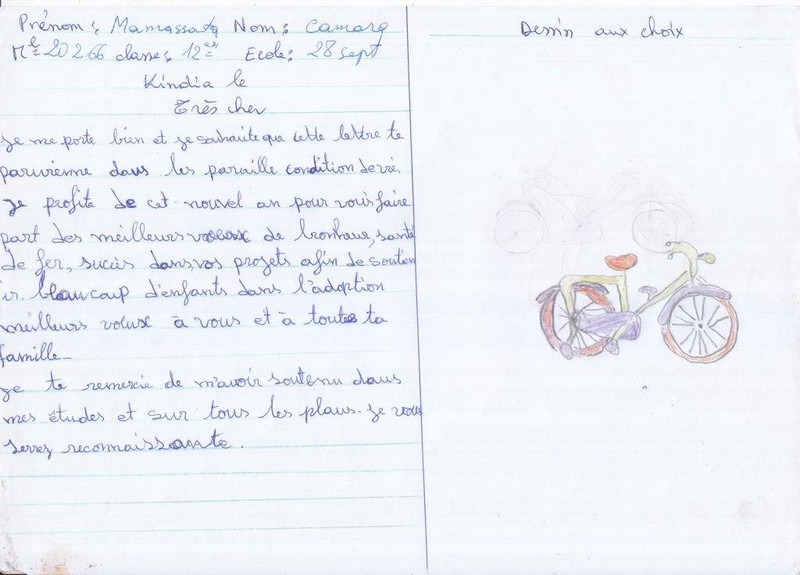 Prénom : Mamassata Nom : Camara
Mle 20266 classe : 12e Ecole : 28 sept
Kindia le
Très cher
Je me porte bien et je souhaite que cette lettre te
parvienne dans les paraille condition de vie.
Je profite de cet nouvel an pour vous faire
part des meilleurs voeux de bonheur, santé
de fer, succès dans vos projets afin de souten
ir beaucoup d'enfants dans l'adoption
meilleurs voeux à vous et à toutes ta
famille.
Je te remercie de m'avoir soutenu dans
mes études et sur tous les plans. Je vous
serez reconnaissante.
Dessin aux choix